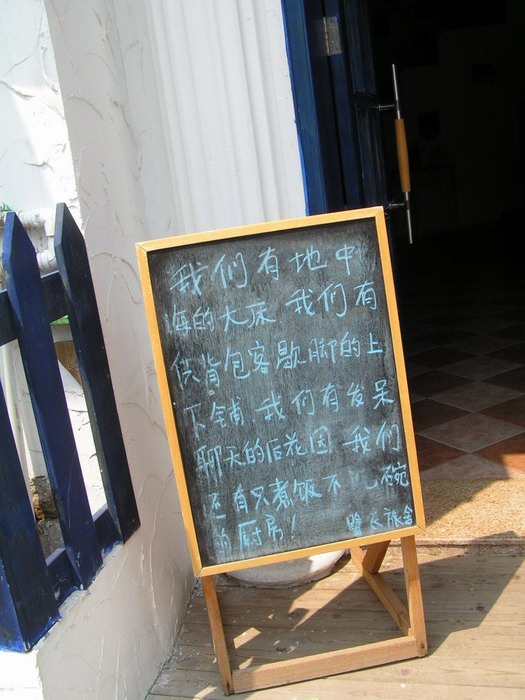 我们有地中
海的大床 我们有
供背包客歇脚的上
下铺.我们有发呆
聊天的后花园 我们
还有只煮饭不 碗
的厨房！ 旅舍